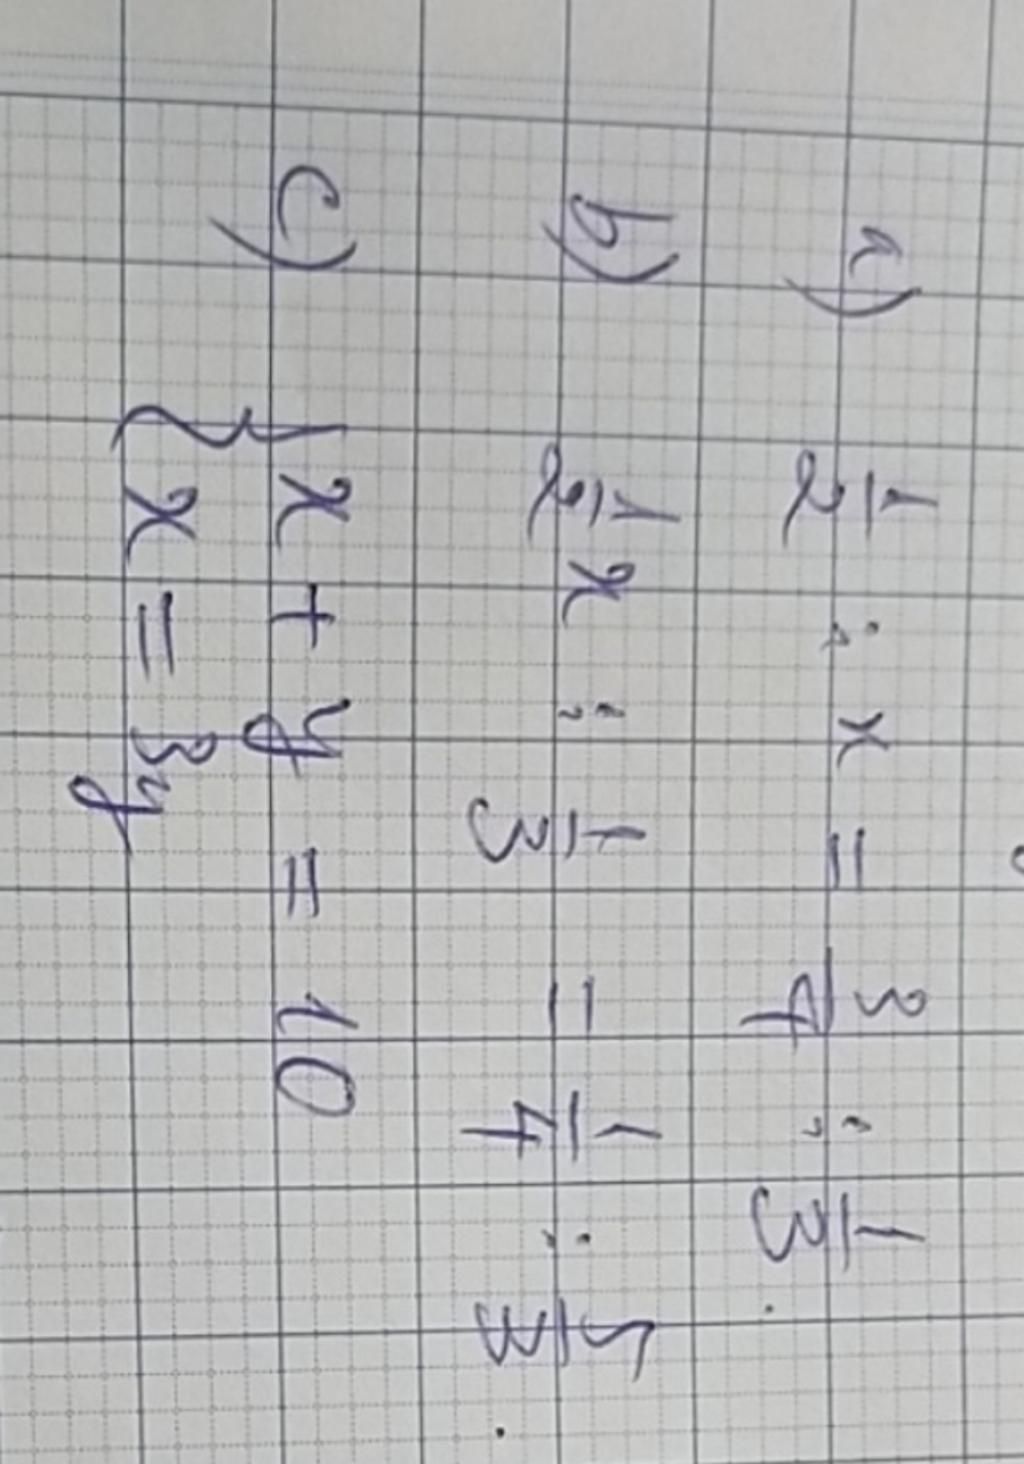 a) 1/2 : x = 3/4 : 1/3 .
b) 1/2 x : 1/3 = 1/4 : 5/3 .
c) { x + y = 10
x = 3y